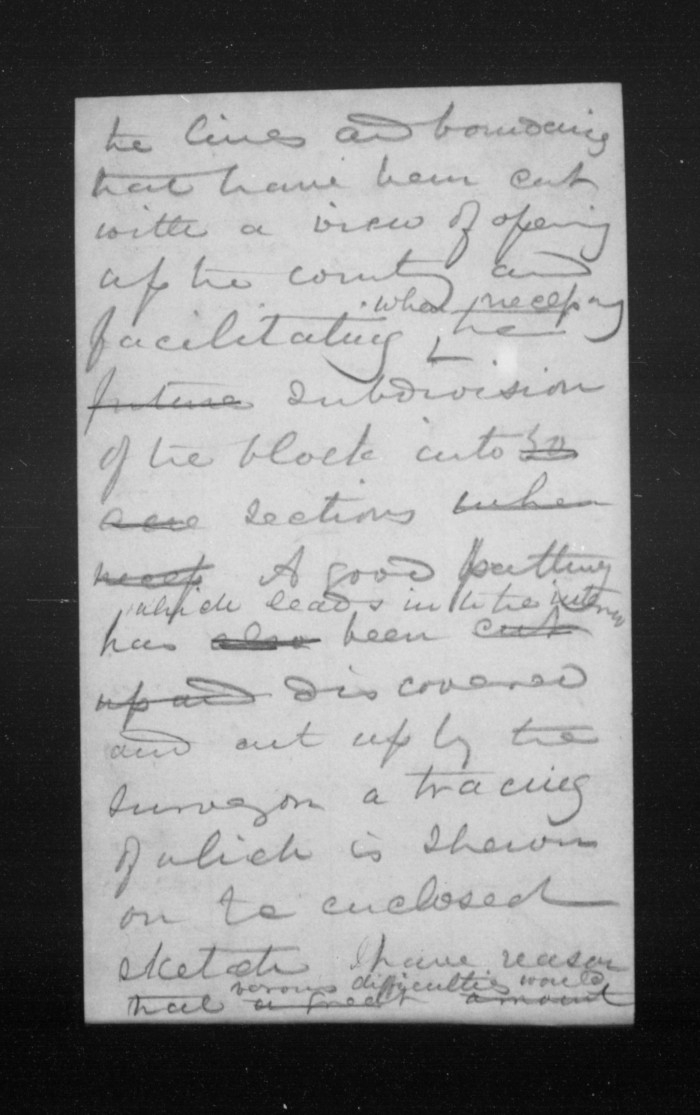 the lines and boundary
that have been cut
with a view of opening
up the country and
when necessary
facilitating the
future subdivision
of the block into
sections when
A good
which leads into the interior
has also been cut
up and discovered
and cut up by the
surveyor a tracing
of which is shewn
on the enclosed
sketch I have reason
various difficulties would
that a great amount